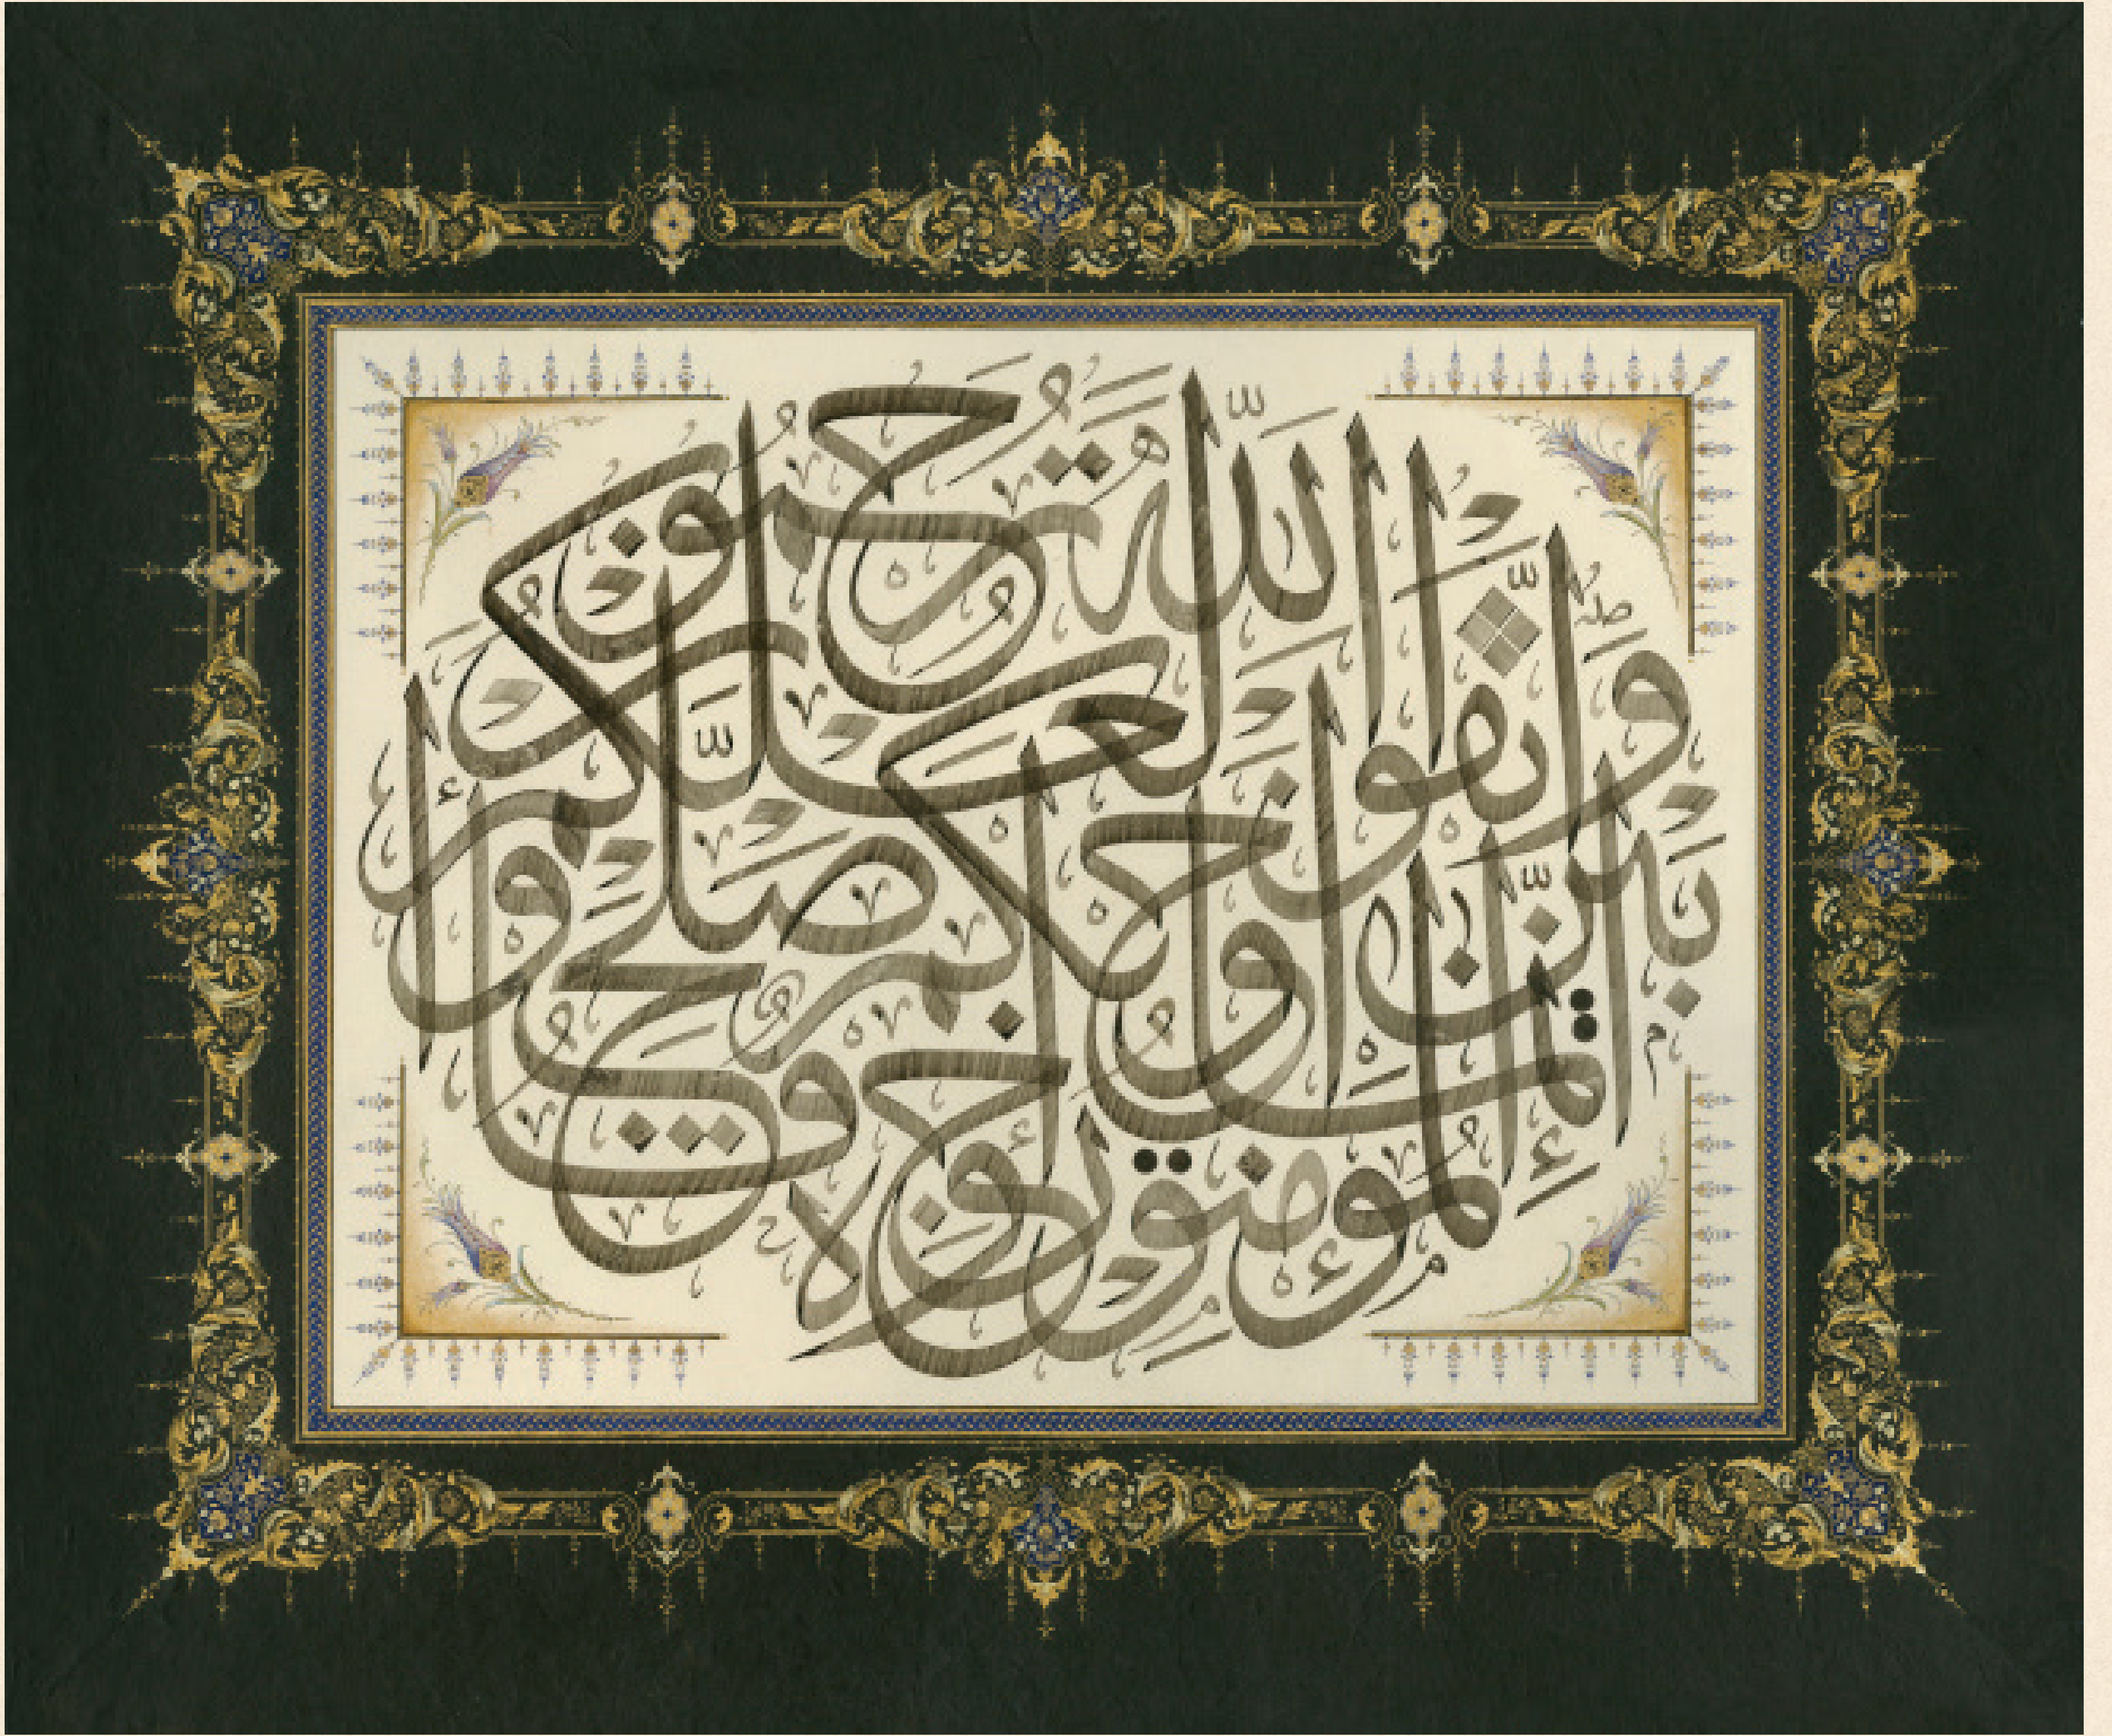 إِنَّمَا الْمُؤْمِنُونَ إِخْوَةٌ فَأَصْلِحُوا بَيْنَ أَخَوَيْكُمْ وَاتَّقُوا اللّٰهَ لَعَلَّكُمْ تُرْحَمُونَ